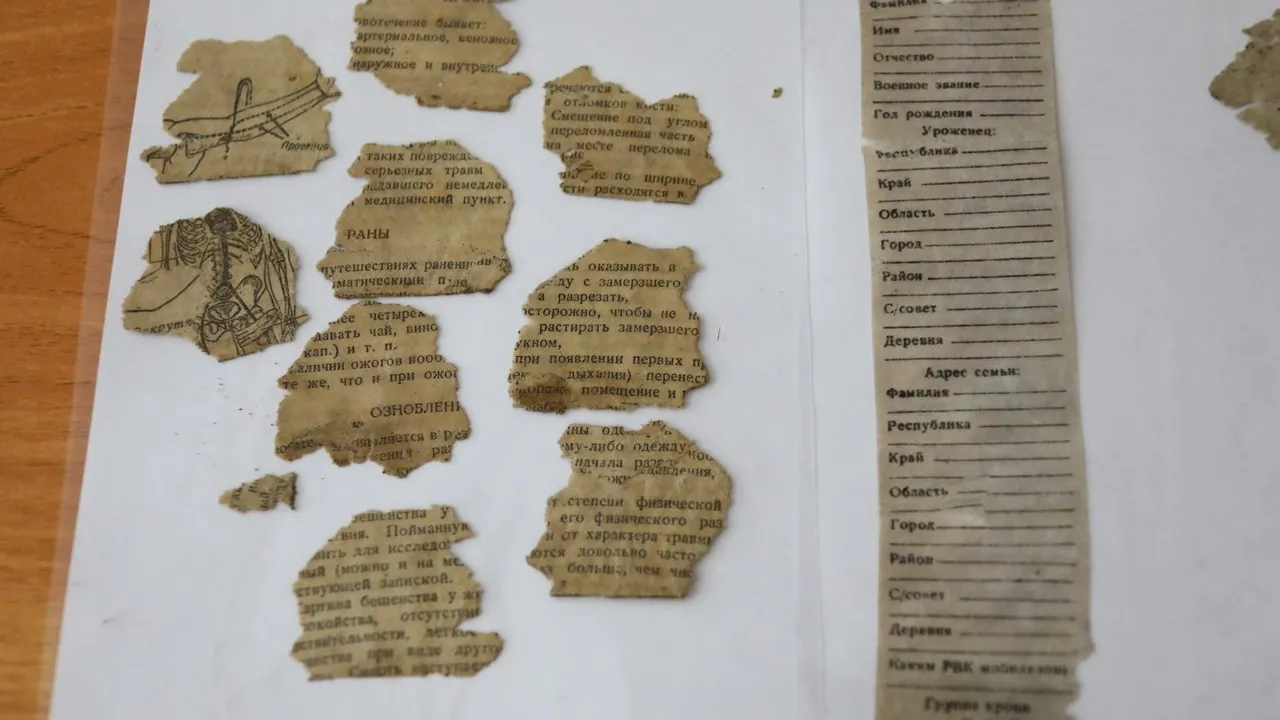 ровотечение бывает:
артериальное, венозное
озное;
наружное и внутрен
Проекция
речаются
и отломков кости:
Смещение под углом
переломленная часть
на месте перелома
рис
ие по ширине,
сти расходятся в
таких поврежд
серьезных травм
радавшего немедле
медицинский пункт.
РАНЫ
путешествиях ранени
матическими
акрут
нее четырех
давать чай, вино
кап.) и т. п.
наличии ожогов вооб
те же, что и при ожо
ОЗНОБЛЕНИ
является в
ра
оказывать в
ду с замерзшего
а разрезать,
осторожно, чтобы не н
растирать замерзшего
укном,
при появлении первых п
дыхания) перенест
помещение и
ины оде
ему-либо одежду
начала
давления,
т степени физической
его физического раз
и от характера травм
ются довольно часто
аз больше, чем
бешенства у
твия. Пойманную
вить для исследо
ный (можно и на ме
ствующей запиской.
артина бешенства у же
покойства, отсутстви
ствительности, легко
нства при виде друго
Смерть наступае
Фамилия
Имя
Отчество
Военное звание
Год рождения
Уроженец:
Республика
Край
Область
Город
Район
С/совет
Деревня
Адрес семьи:
Фамилия
Республика
Край
Область
Город
Район
С/совет
Деревня
Каким РВК мобилизован
Группа крови